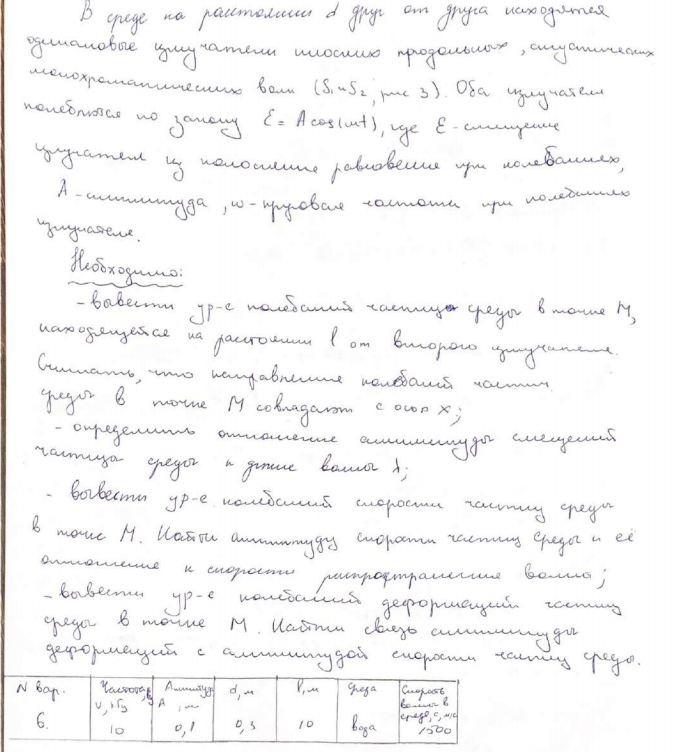 В среде на расстоянии d друг от друга находятся
одинаковые излучатели плоских продольных, акустических
монохроматических волн (S₁ и S₂; рис 3). Оба излучателя
колеблются по закону ξ = A cos(ωt), где ξ - смещение
излучателя из положение равновесие при колебаниях,
A - амплитуда, ω - круговая частота при колебаниях
излучателя.
Необходимо:
- вывести ур-е колебаний частицы среды в точке М,
находящейся на расстоянии l от второго излучателя.
Считать, что направление колебаний частиц
среды в точке М совпадают с осью X;
- определить отношение амплитуды смещений
частицы среды к длине волны λ;
- вывести ур-е колебаний скорости частиц среды
в точке М. Найти амплитуду скорости частиц среды и её
отношение к скорости распространение волны;
- вывести ур-е колебаний деформаций частиц
среды в точке М. Найти связь амплитуды
деформаций с амплитудой скорости частиц среды.
N вар. Частота, ν, кГц Амплитуд A, м d, м l, м среда Скорость волны в среде, c, м/с
6. 10 0,1 0,3 10 вода 1500